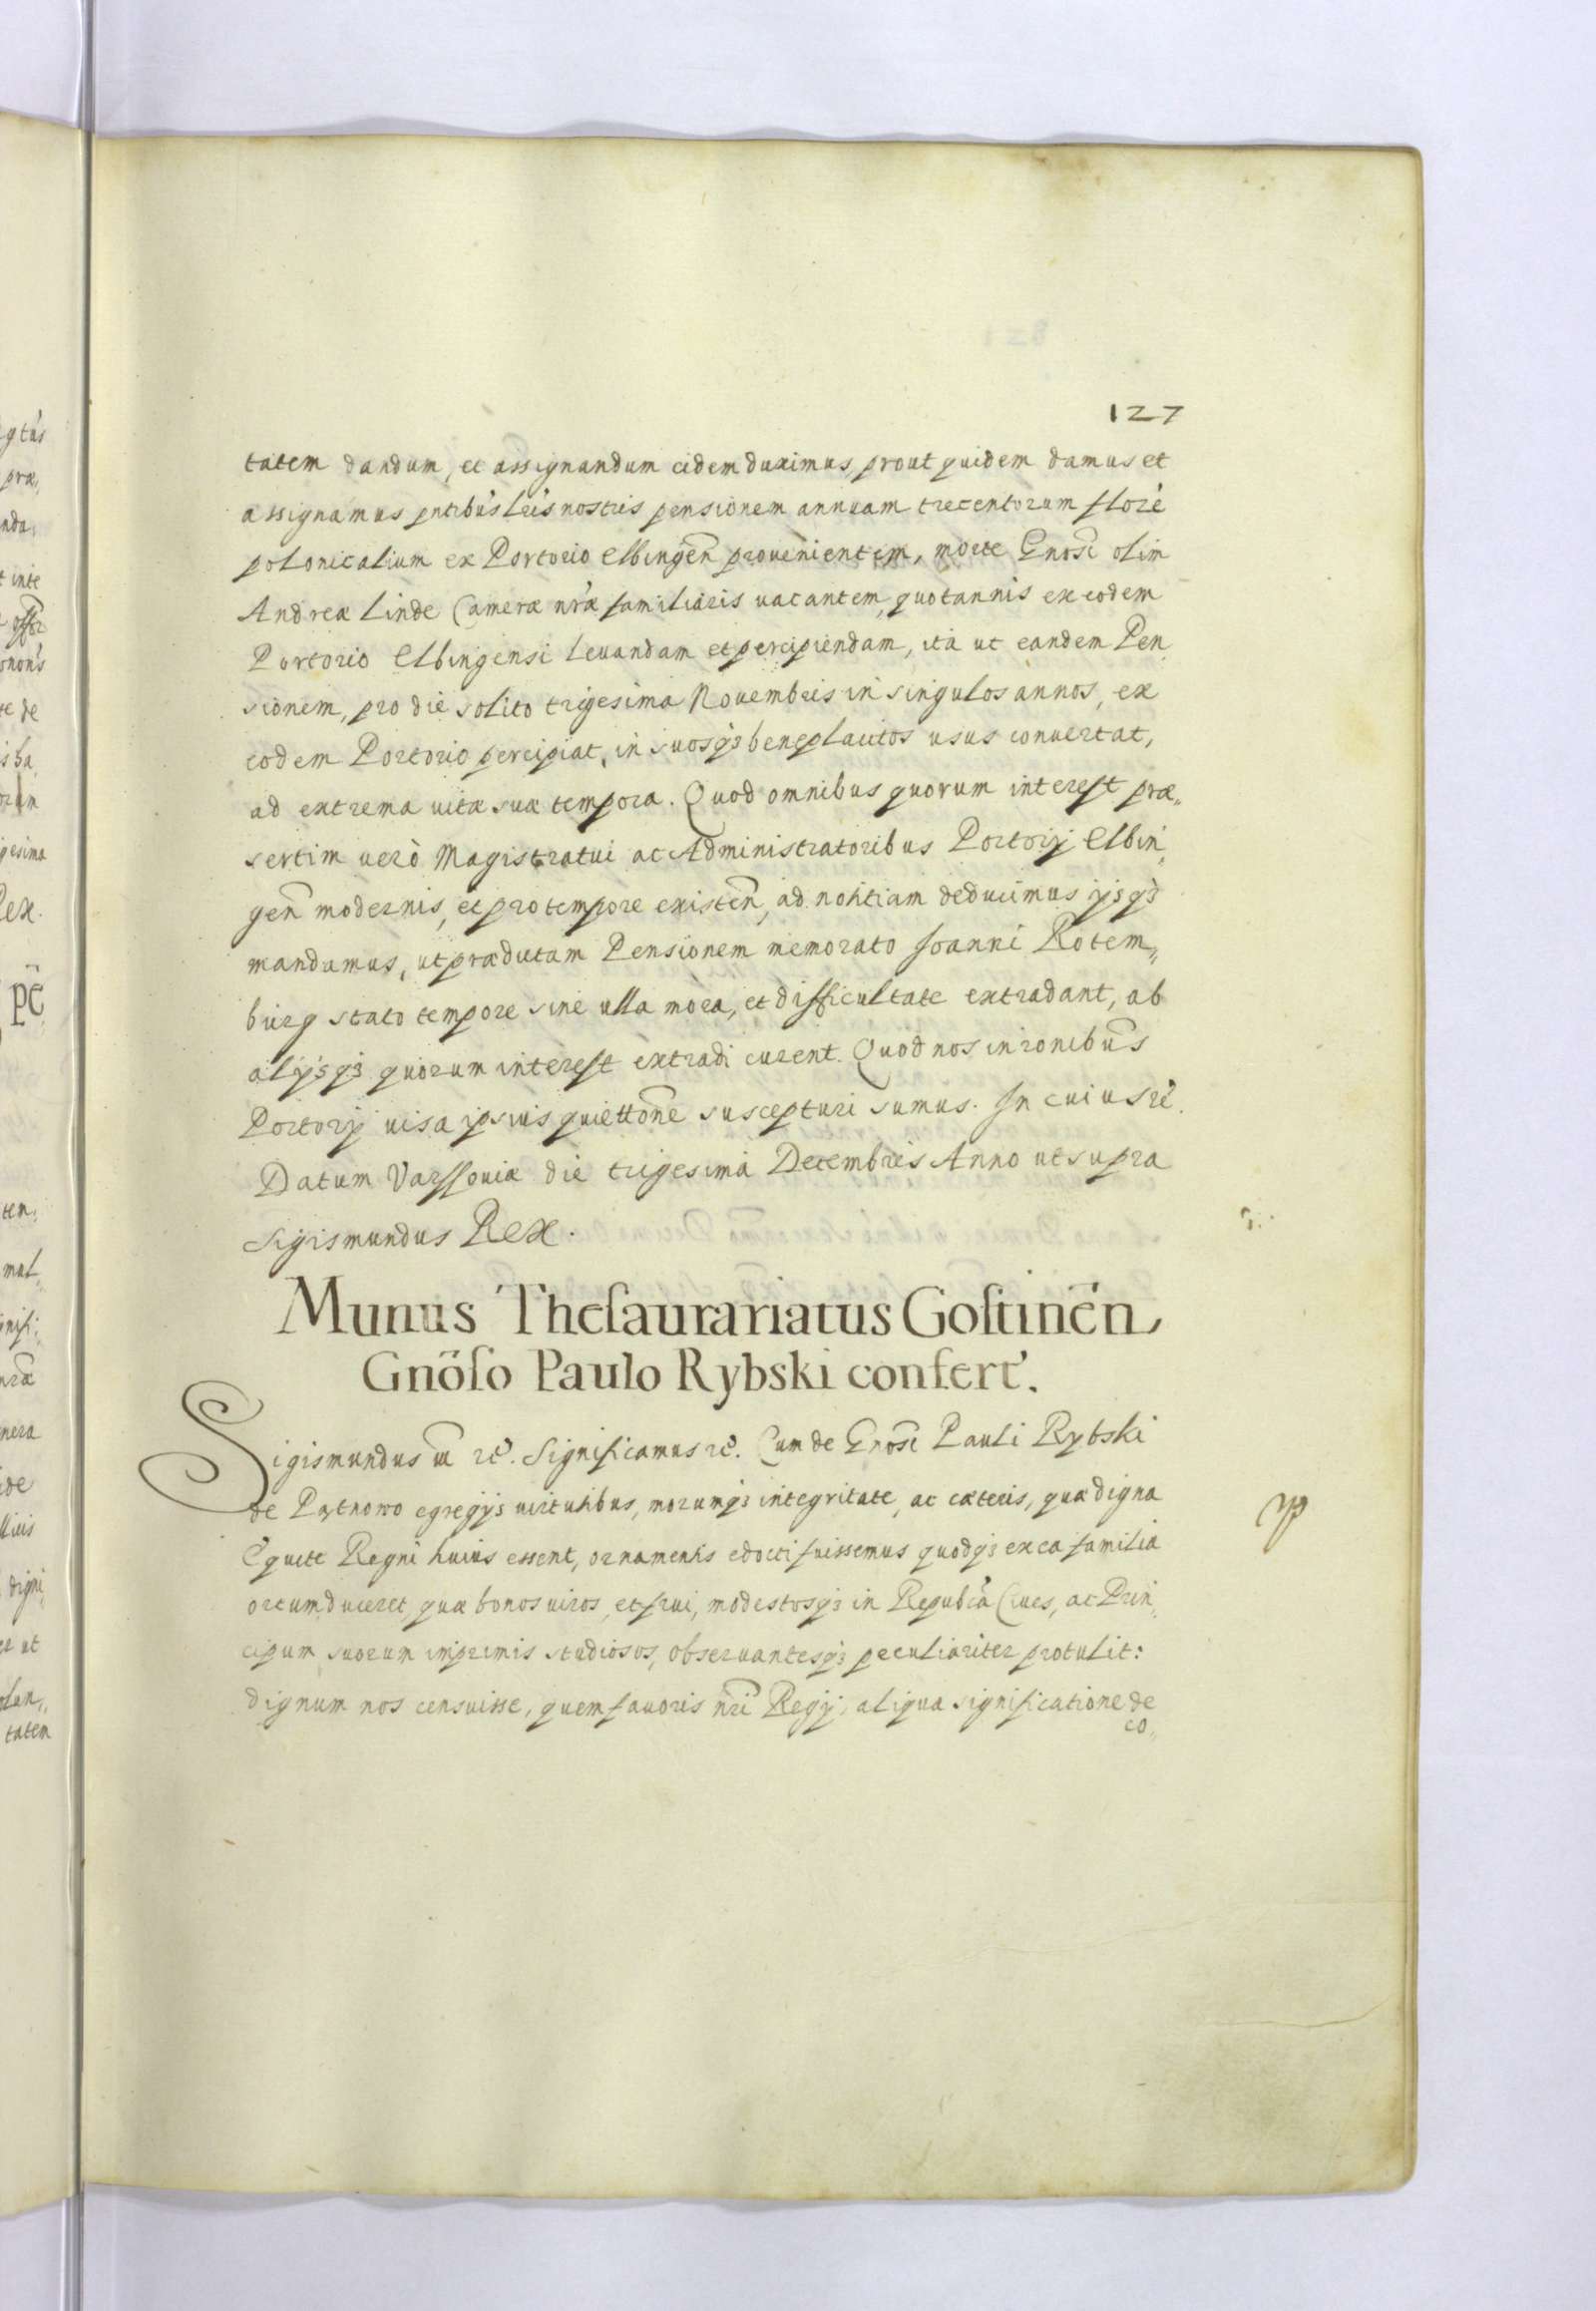 127
tatem dandum, et assignandum eidem duximus, prout quidem damus et
assignamus pntibus lris nostris pensionem annuam trecentorum flore
polonicalium ex Portorio Elbingen prouenientem, morte Gnosi olim
Andreæ Linde Cameræ nræ familiaris uacantem, quotannis ex eodem
Portorio Elbingensi leuandam et percipiendam, ita ut eandem Pen,
sionem, pro die solito trigesima Nouembris in singulos annos, ex
eodem Portorio percipiat, in suosq3 beneplacitos usus conuertat,
ad extrema uitæ suæ tempora. Quod omnibus quorum interest præ„
sertim uerò Magistratui ac Administratoribus Portorij Elbin,
gen modernis, et pro tempore existen, ad notitiam deducimus ijsq3
mandamus, ut prædictam Pensionem memorato Joanni Rotem„
burg stato tempore sine ulla mora, et difficultate extradant, ab
alijsq3 quorum interest extradi curent. Quod nos in ronibus
Portorij uisa ipsius quiettone suscepturi sumus. In cuius rē.
Datum Varssouiæ die trigesima Decembris Anno ut supra
Sigismundus Rex.
Munus Thesaurariatus Gostinēn
Gnōso Paulo Rybski confert'.
Sigismundus III rc. Significamus rc. Cum de Gnosi Pauli Rybski
de Pętnowo egregijs uirtutibus, morumq3 integritate, ac cæteris, quæ digna
Equite Regni huius essent, ornamentis edocti fuissemus quodq3 ex ea familia
ortum duceret, quæ bonos uiros, et frui, modestosq3 in Republica Ciues, ac Prin,
cipum suorum imprimis studiosos, obseruantesq3 peculiariter protulit:
dignum nos censuisse, quem fauoris nri Regij, aliqua significatione de
co„